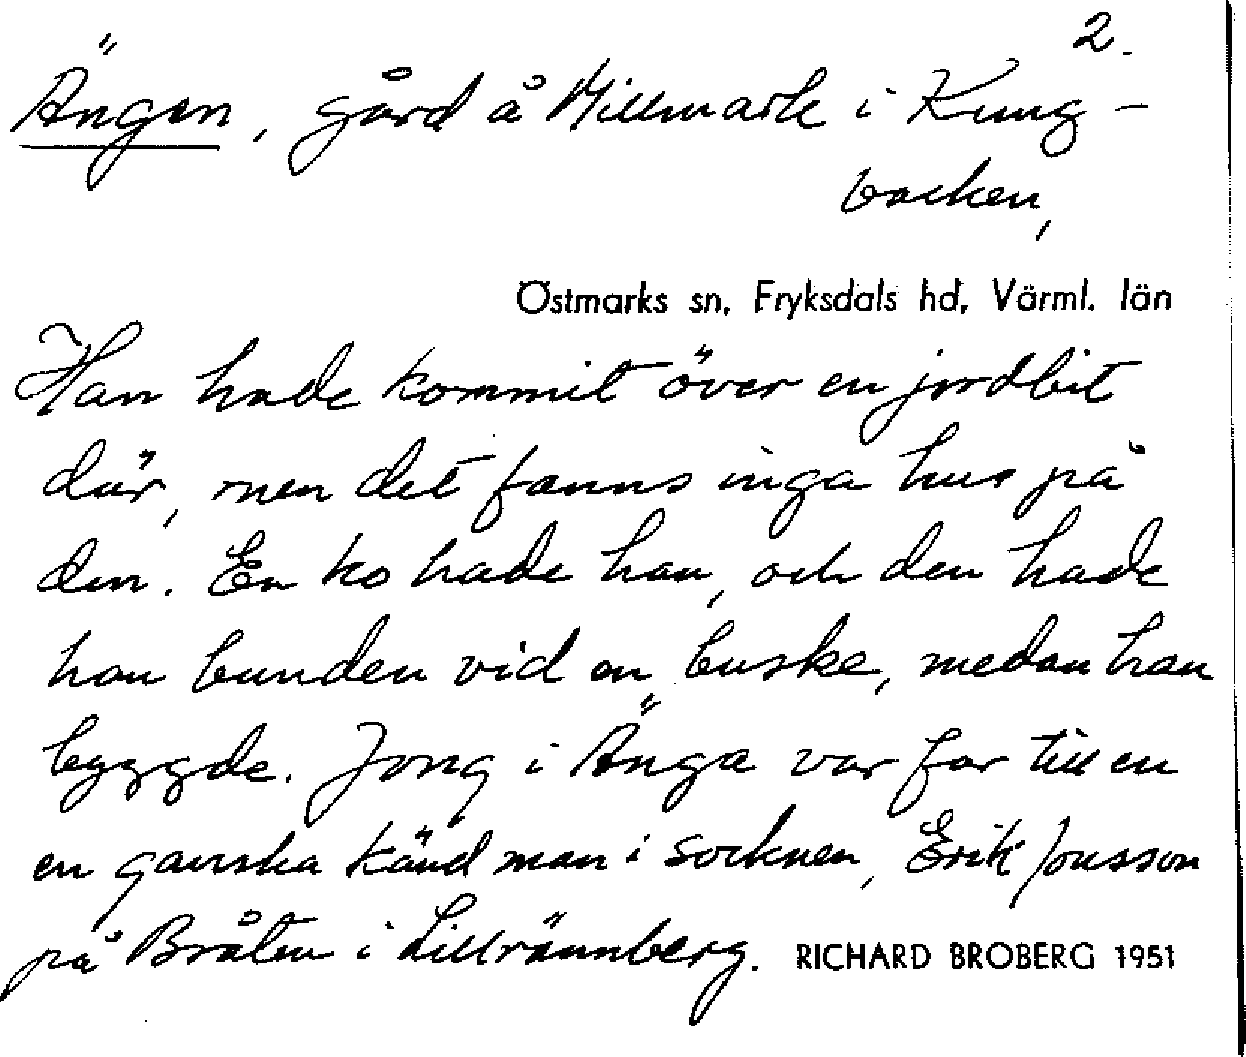 2.
Ängen, gård å Hillmark i Kung-
backen,
Östmarks sn, Fryksdals hd, Värml. län
Han hade kommit över en jordbit
där, men det fanns inga hus på
den. En ko hade han, och den hade
han bunden vid en buske, medan han
byggde. Jong i Änga var far till en
en ganska känd man i socknen, Erik Jonsson
på Bråten i Lillrännberg. RICHARD BROBERG 1951